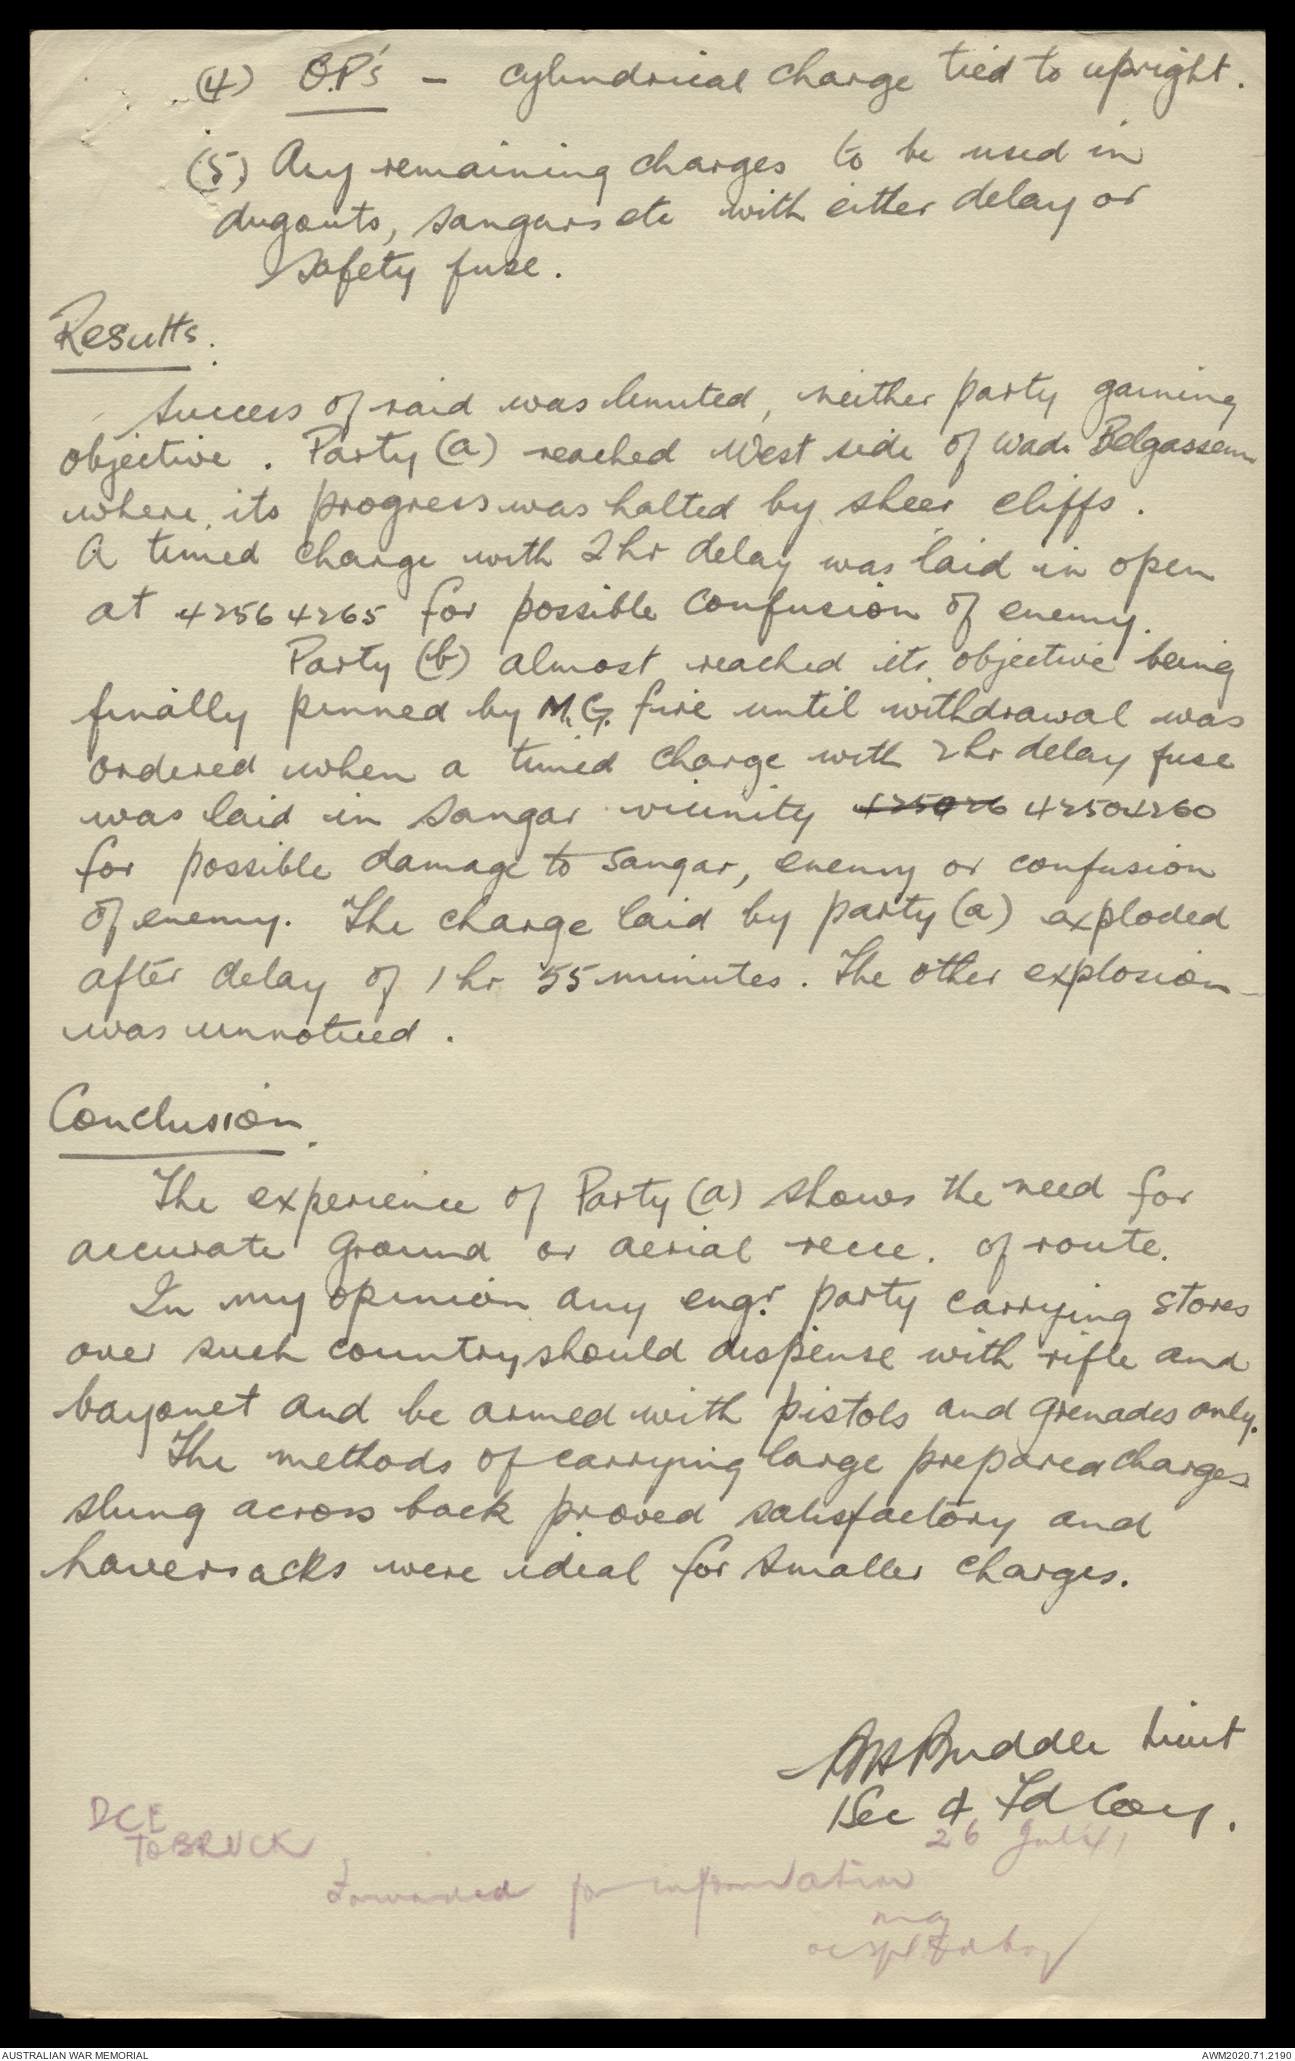 (4) O.P's - cylindrical charge tied to upright.
(5) Any remaining charges to be used in
dugouts, sangars etc with either delay or
safety fuse.
Results.
Success of raid was limited, neither party gaining
objective. Party (a) reached West side of Wadi Belgassem
where its progress was halted by sheer cliffs.
A timed charge with 2hr delay was laid in open
at 42564265 for possible confusion of enemy.
Party (b) almost reached its objective being
finally pinned by M.G. fire until withdrawal was
ordered when a timed charge with 2hr delay fuse
was laid in sangar vicinity 42504260
for possible damage to sangar, enemy or confusion
of enemy. The charge laid by party (a) exploded
after delay of 1 hr 55 minutes. The other explosion
was unnoticed.
Conclusion.
The experience of Party (a) shows the need for
accurate ground or aerial recce. of route.
In my opinion any engr. party carrying stores
over such country should dispense with rifle and
bayonet and be armed with pistols and grenades only.
The methods of carrying large prepared charges
slung across back proved satisfactory and
haversacks were ideal for smaller charges.
Buddle Lieut
1 Sec 4 Fd Coy.
DCE
TOBRUCK
26 Jul 41
Forwarded for information
Maj